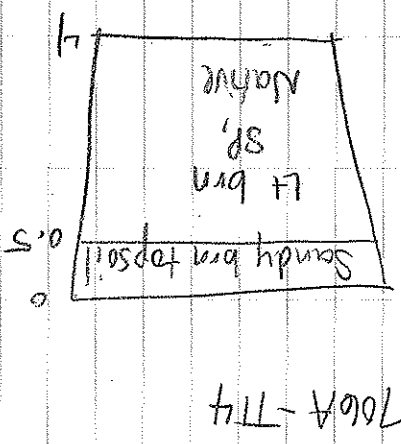 706A - TT4
0
Sandy brn topsoil
0.5
Lt brn
SP,
Native
4